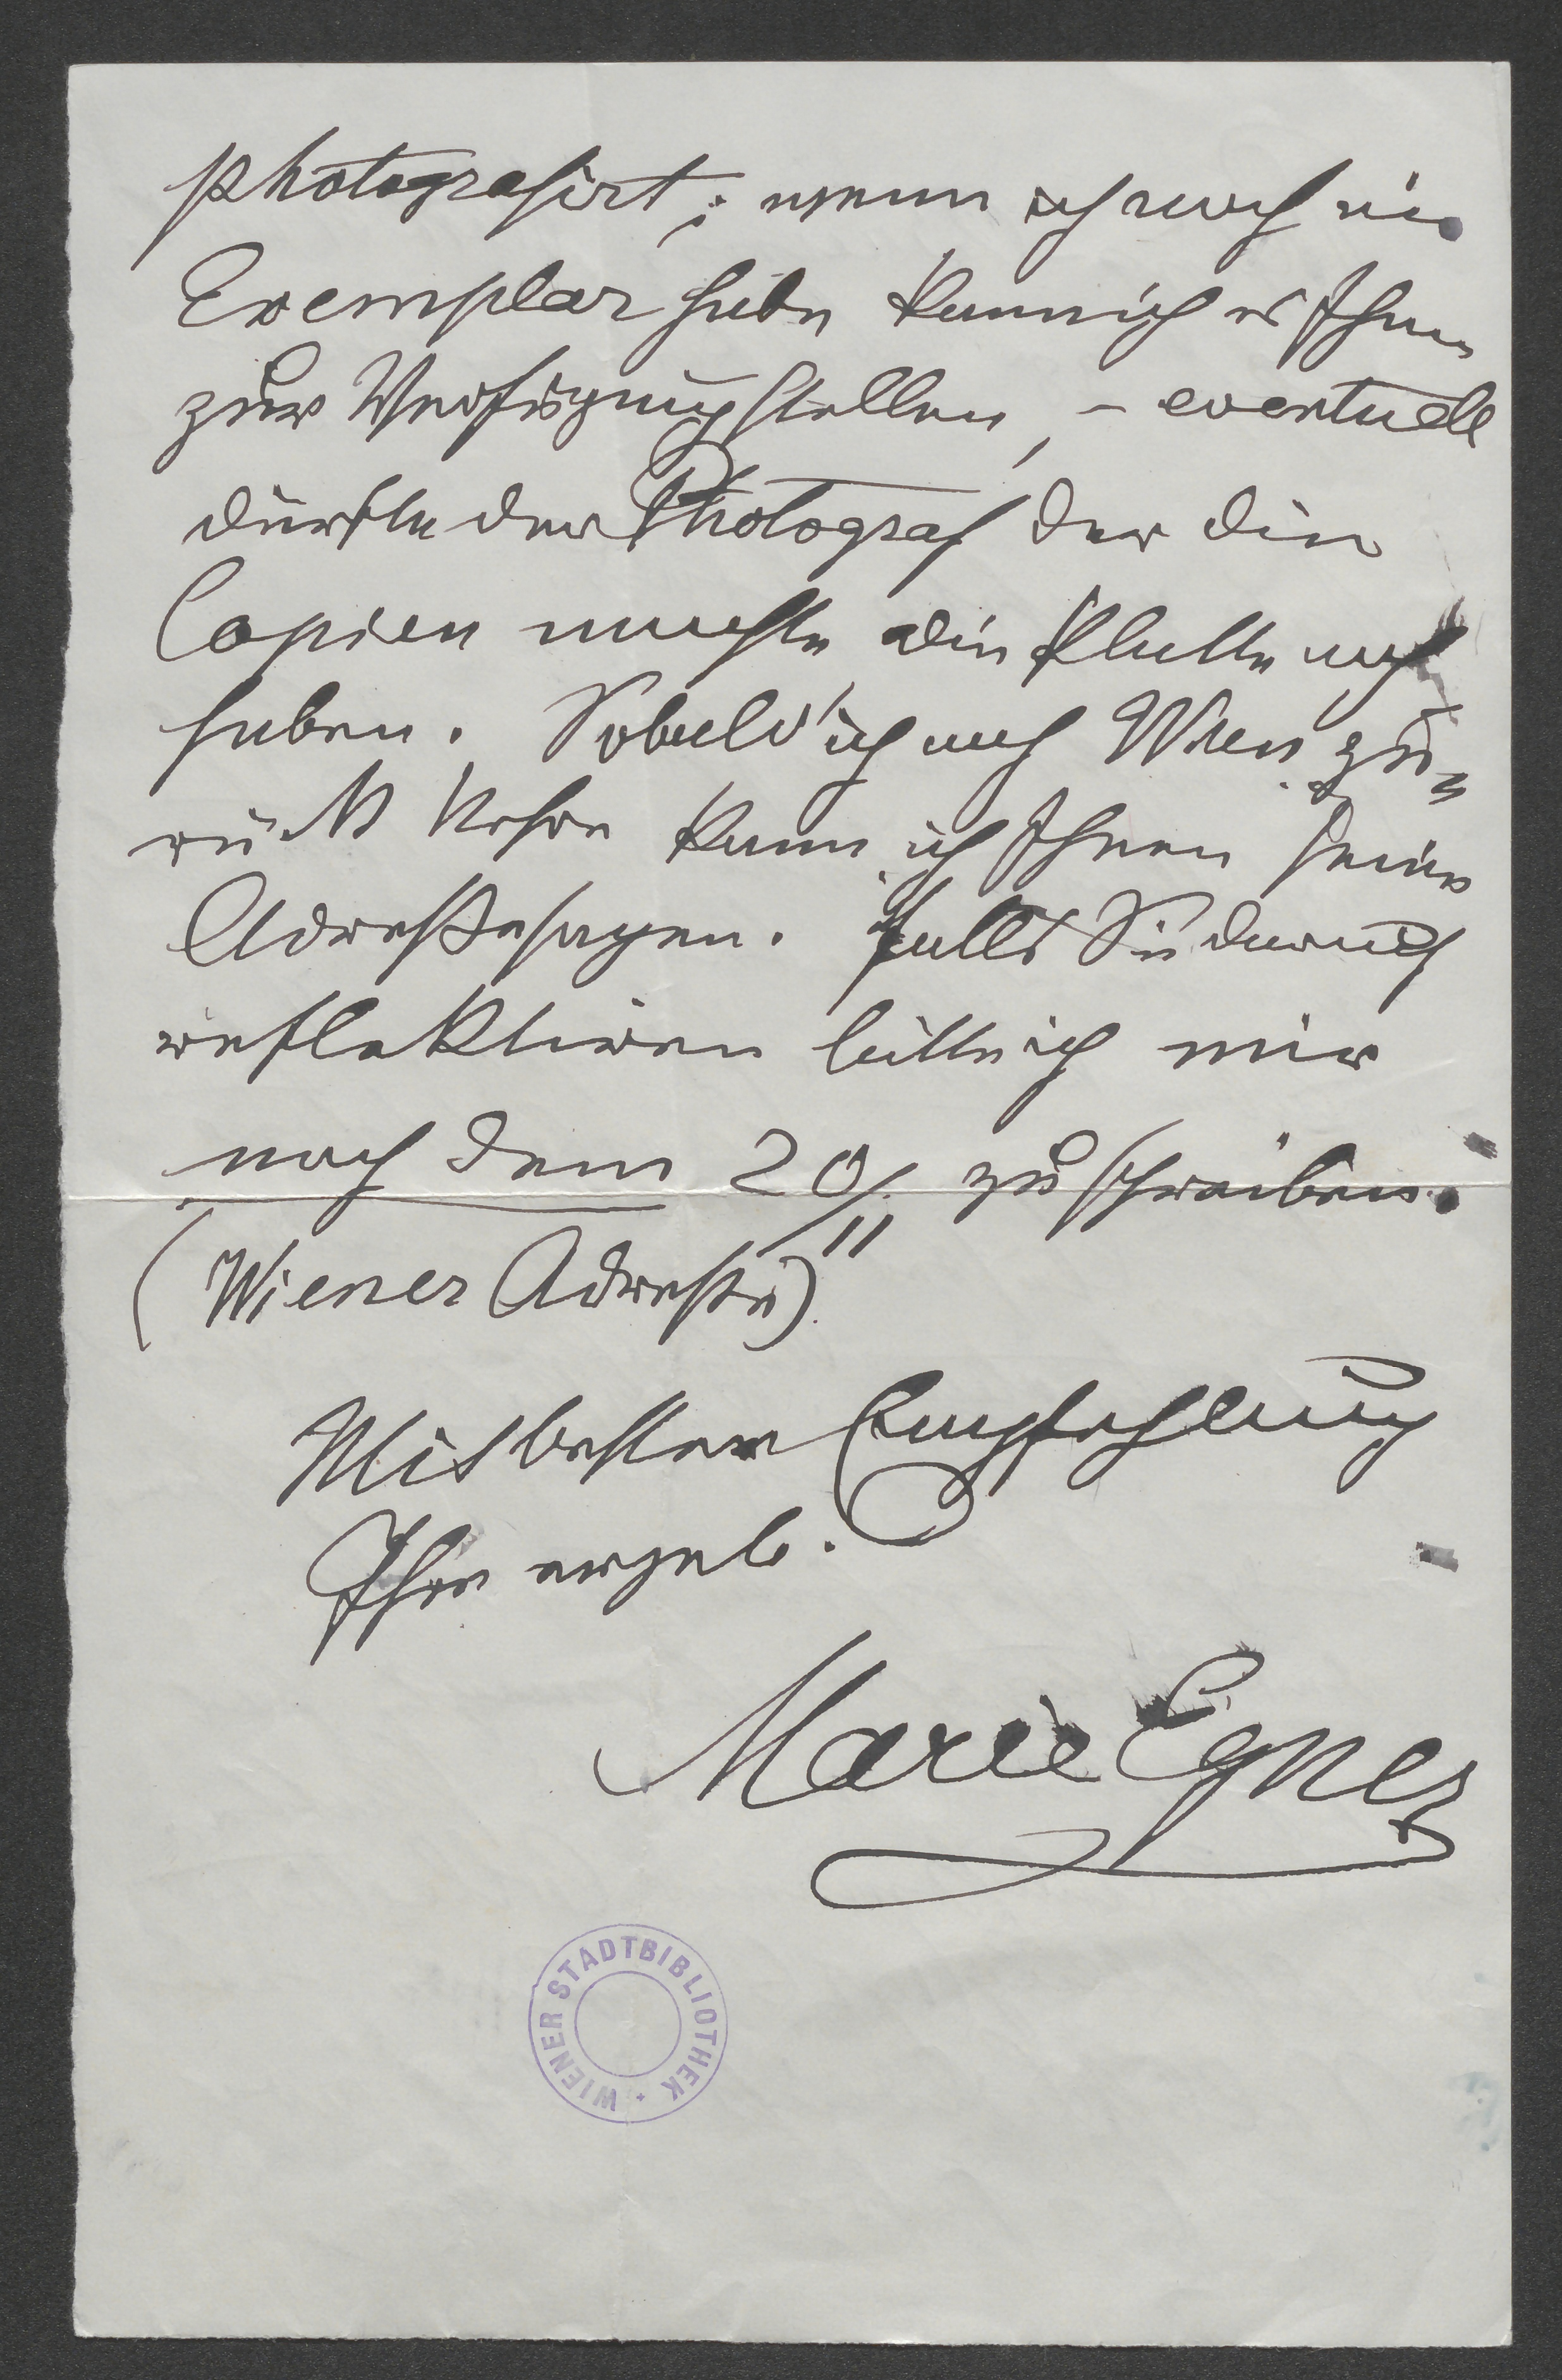 photografirt; wenn ich noch ein
Exemplar habe kann ich es Ihnen
zur Verfügung stellen, – eventuell
dürfte der Photograf der die
Copien machte die Platte noch
haben. Sobald ich nach Wien zu=
rück kehre kann ich Ihnen seine
Adreße sagen. Falls Sie darauf
reflektiren bitte ich mir
nach dem 20/11 zu schreiben.
(Wiener Adreße).
Mit bester Empfehlung
Ihre ergeb.
Marie Egner
WIENER STADTBIBLIOTHEK